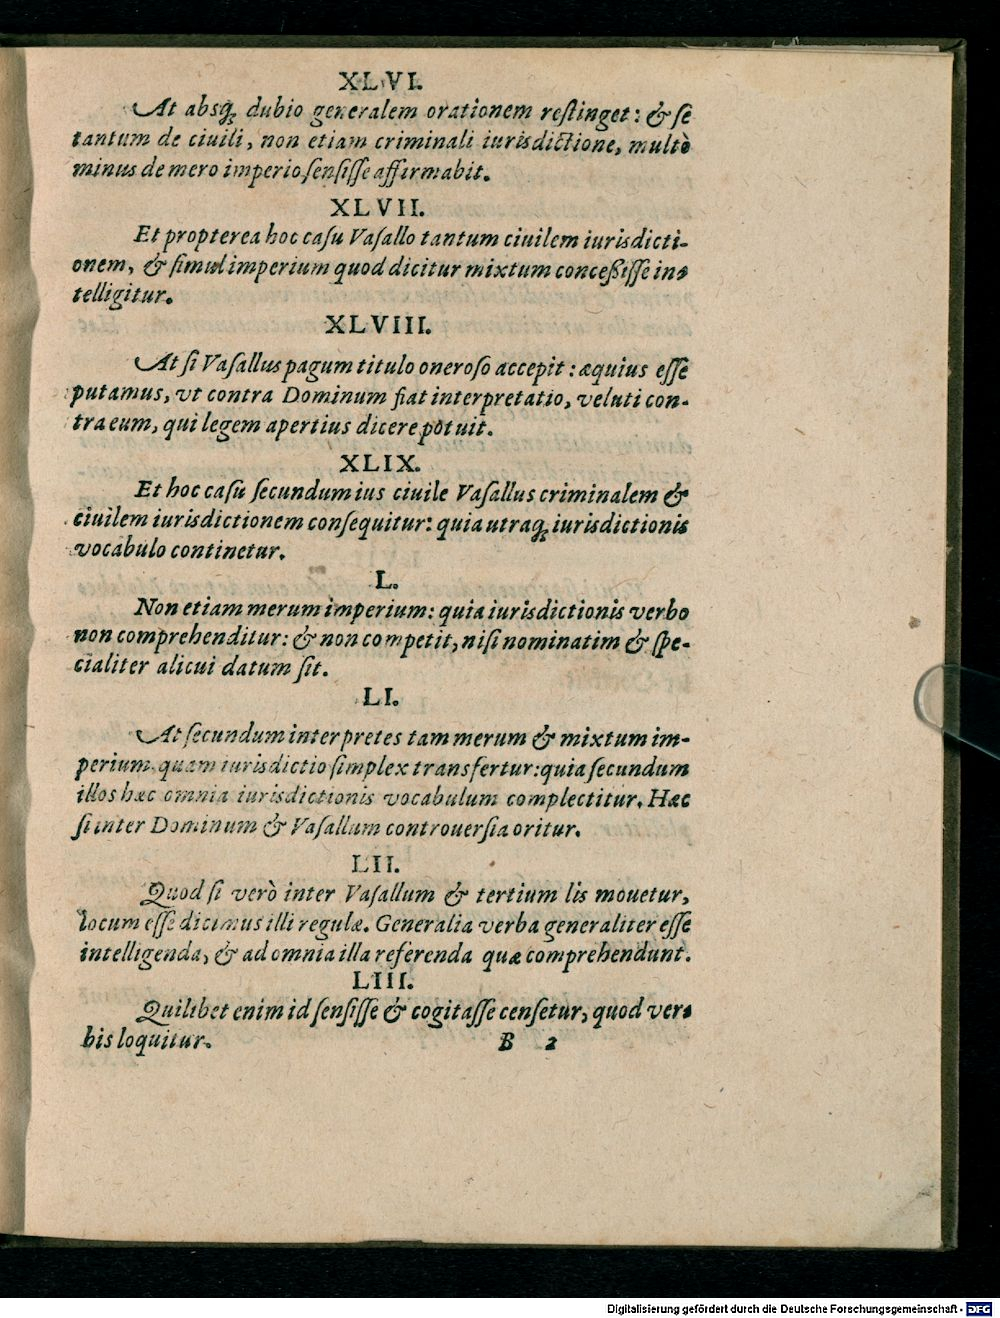 XLVI.
At absq́; dubio generalem orationem reſtinget: & ſe
tantum de ciuili, non etiam criminali iurisdictione, multò
minus de mero imperio ſenſiſſe affirmabit.
XLVII.
Et propterea hoc caſu Vaſallo tantum ciuilem iurisdicti-
onem, & ſimul imperium quod dicitur mixtum conceßiſſe in-
telligitur.
XLVIII.
At ſi Vaſallus pagum titulo oneroſo accepit: æquius eſſe
putamus, vt contra Dominum fiat interpretatio, veluti con-
tra eum, qui legem apertius dicere potuit.
XLIX.
Et hoc caſu ſecundum ius ciuile Vaſallus criminalem &
ciuilem iurisdictionem conſequitur: quia utraq́; iurisdictionis
vocabulo continetur.
L.
Non etiam merum imperium: quia iurisdictionis verbo
non comprehenditur: & non competit, niſi nominatim & ſpe-
cialiter alicui datum ſit.
LI.
At ſecundum interpretes tam merum & mixtum im-
perium quam iurisdictio ſimplex transfertur: quia ſecundum
illos hæc omnia iurisdictionis vocabulum complectitur. Hæc
ſi inter Dominum & Vaſallum controuerſia oritur.
LII.
Quod ſi verò inter Vaſallum & tertium lis mouetur,
locum eſſe dicimus illi regulæ. Generalia verba generaliter eſſe
intelligenda, & ad omnia illa referenda quæ comprehendunt.
LIII.
Quilibet enim id ſenſiſſe & cogitaſſe cenſetur, quod ver-
bis loquitur.
B 2
Digitalisierung gefördert durch die Deutsche Forschungsgemeinschaft - DFG